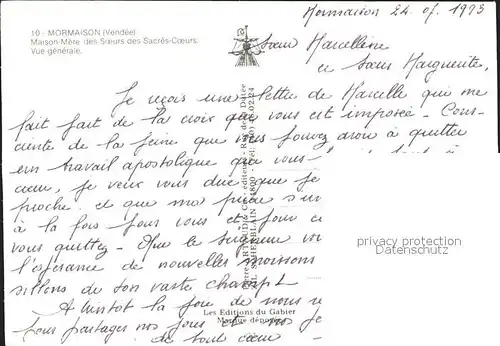 10 - MORMAISON (Vendée)
Maison-Mère des Sœurs des Sacrés-Cœurs.
Vue générale.
Mormaison 24. 07. 1993
Sœur Marcelline
et Sœur Marguerite,
Je reçois une lettre de Marcelle qui me
fait part de la croix qui vous est imposée - Cons-
ciente de la peine que vous pouvez avoir à quitter
un travail apostolique que vous
cœur, je veux vous dire que je
proche. et que moi prie
à la fois pour vous et pour ce
vous quittez - Que le Seigneur vo
l'espérance de nouvelles moissons
sillons de son vaste champ
A bientôt la joie de nous
pour partager nos joies et nos
de tout cœur -
privacy protection
Datenschutz
Les Editions du Gabier
Marque déposée